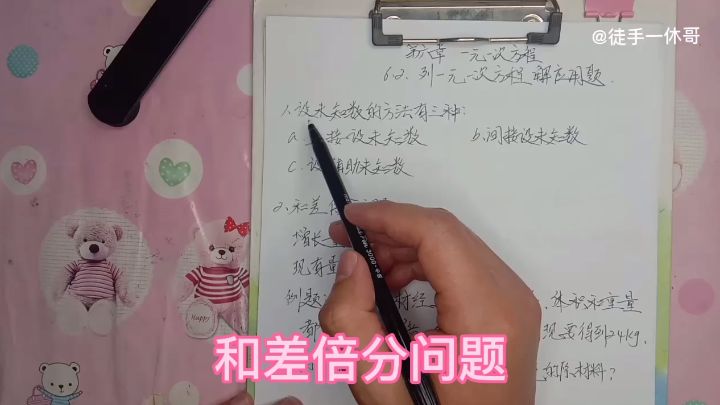 @徒手一休哥
第六章 一元一次方程
6.2. 列一元一次方程解应用题.
1.设未知数的方法有三种:
a 接设未知数 b.间接设未知数
c.设辅助未知数
2.和差
增长
现有量
例题 材经 体积和重量
都 现要得到24kg.
的原材料?
和差倍分问题
Happy